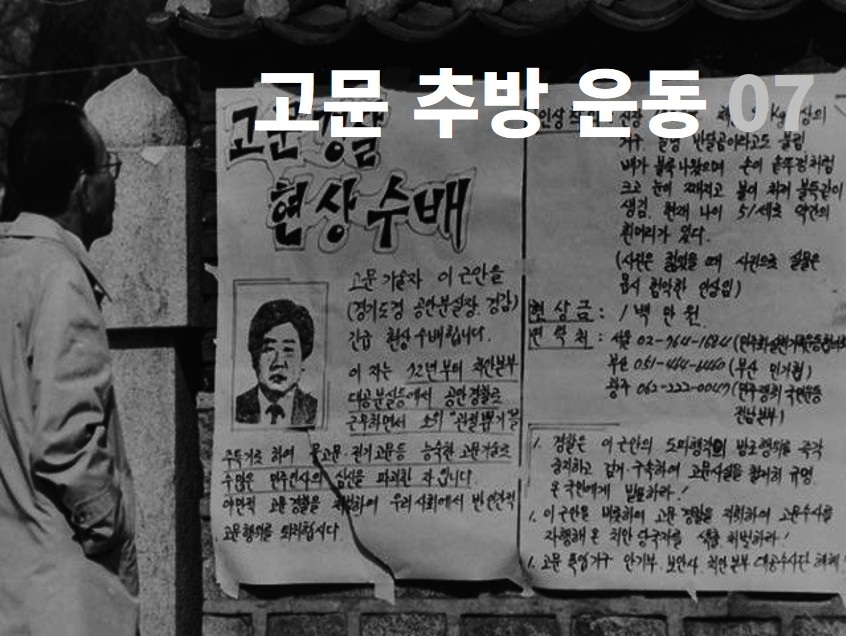 고문 추방 운동 07
고문경찰
현상수배
고문 기술자 이근안을
(경기도경 공안분실장. 경감)
긴급 현상수배합니다.
이 자는 72년부터 치안본부
대공분실등에서 공안경찰로
근무하면서 소위 "관절뽑기"를
주특기로 하여 물고문·전기고문등 능숙한 고문기술로
수많은 민주인사의 심신을 파괴한 자입니다.
야만적 고문경찰을 체포하여 우리 사회에서 반인간적
고문행위를 퇴치합시다
가구. 일명 반달곰이라고도 불림
배가 불룩나왔으며 손이 솥뚜껑처럼
크고 눈이 째지고 볼이 쳐져 불독같이
생김. 현재 나이 51세로 약간의
흰머리가 있다.
(사진은 젊었을 때 사진으로 실물은
몹시 험악한 인상임)
현상금 : 1백만원
연락처 : 서울 02-764-1584
부산 051-464-6440 (부산 민가협)
광주 062-222-0047 (민주쟁취 국민운동
전남본부)
1. 경찰은 이근안의 도피행각의 방조행위를 즉각
중지하고 검거·구속하여 고문사실을 철저히 규명
온국민에게 발표하라!
1. 이근안을 비롯하여 고문 경찰을 지휘하여 고문수사를
자행해 온 치안 당국자를 색출, 처벌하라!
1. 고문 폭압기구 안기부, 보안사, 치안본부 대공수사단 해체